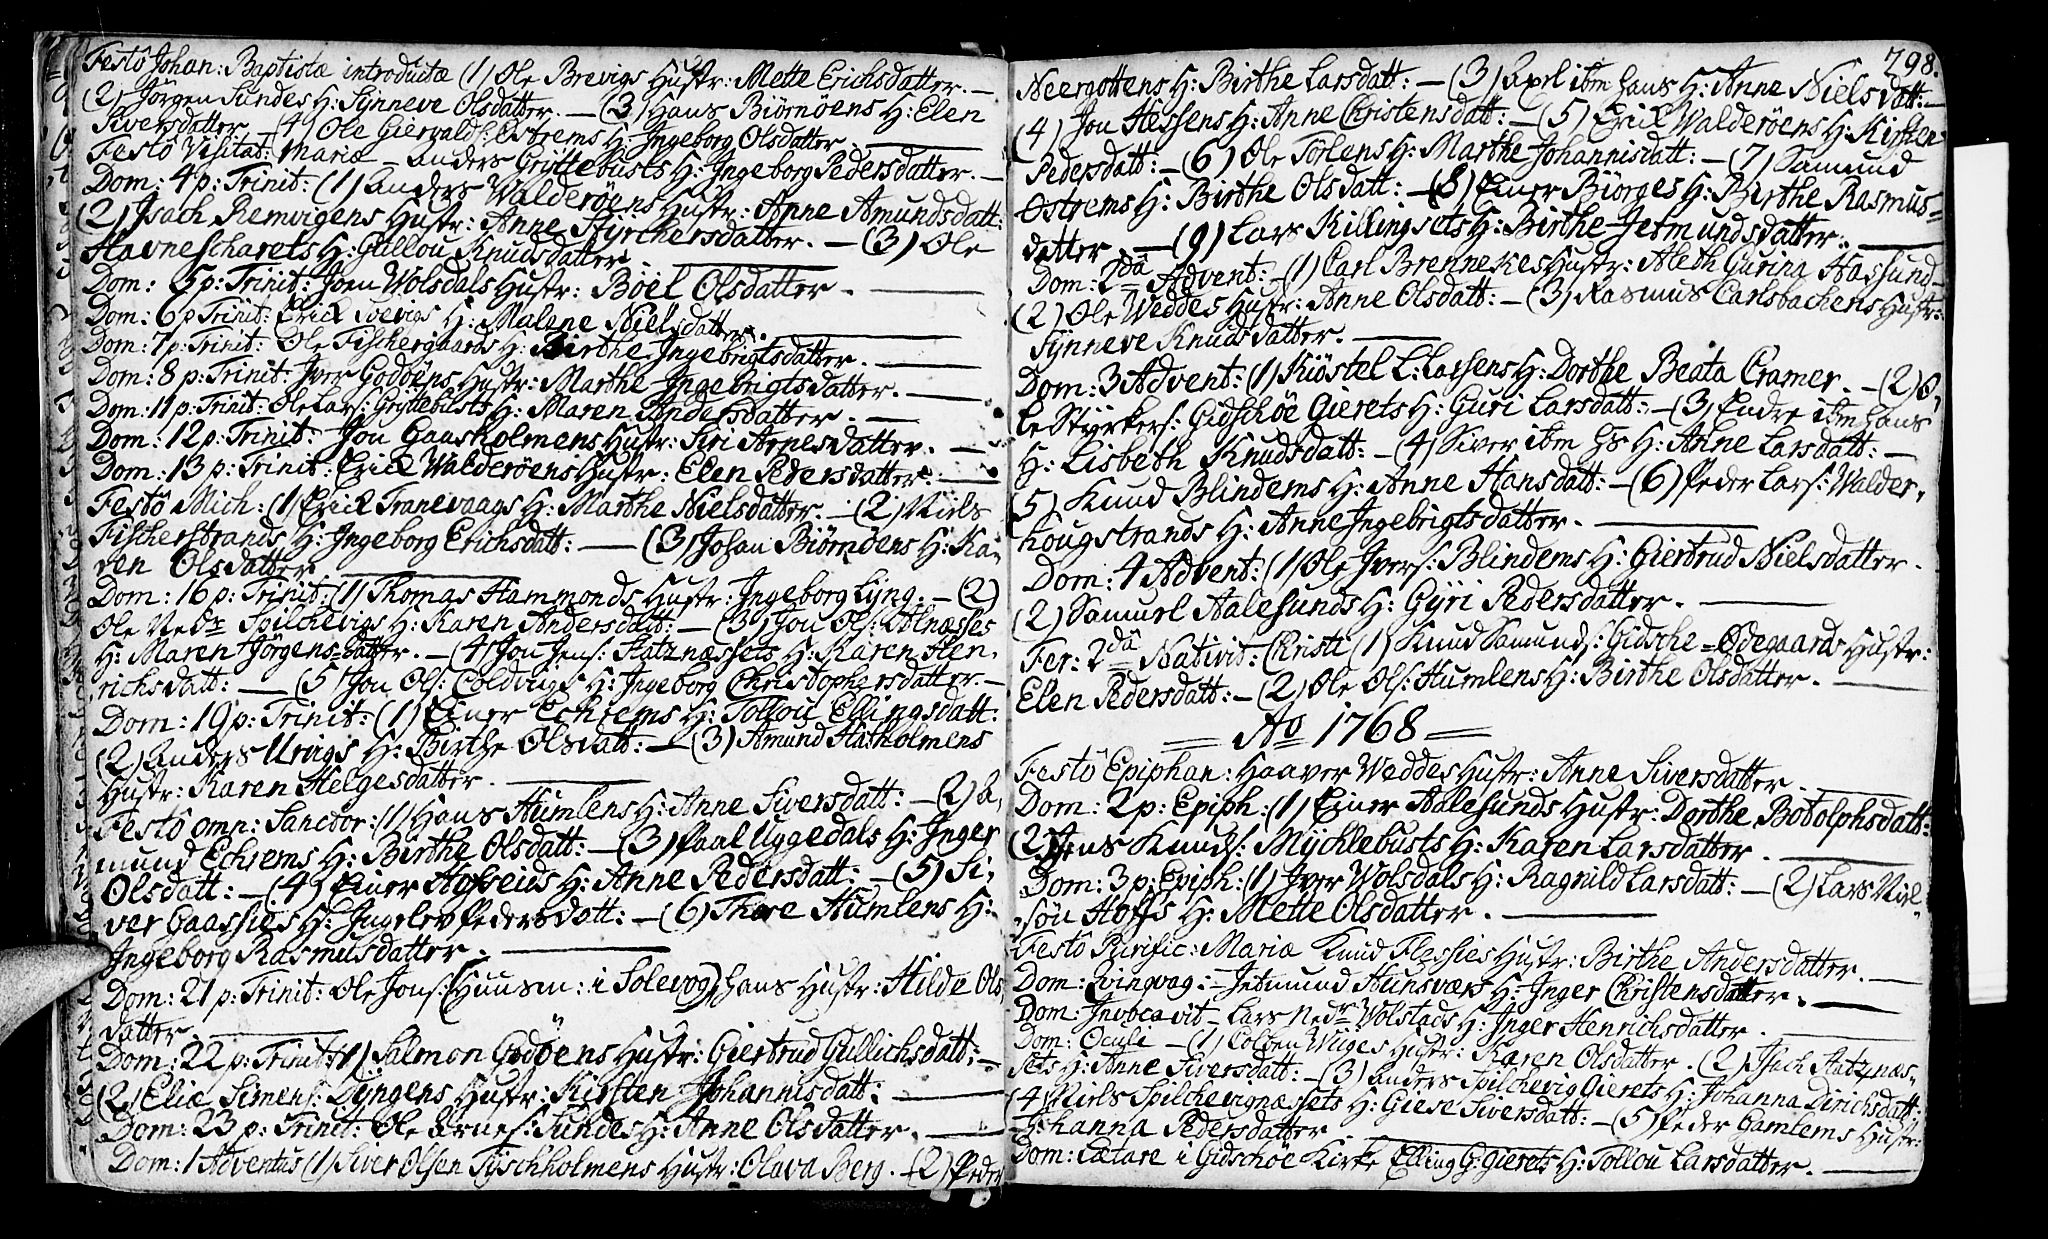 Festô Johan: Baptistæ introductæ (1) Ole Brevigs Hustr: Mette Erichsdatter. —
(2) Jörgen Sundes H: Synneve Olsdatter. — (3) Hans Biörnöens H: Elen
Siversdatter — (4) Ole Østrems H: Ingeborg Olsdatter. —
Festô Visitat: Mariæ — Anders Gryttebusts H: Ingeborg Pedersdatter. —
Dom: 4 p: Trinit: (1) Anders Walderöens Hustr: Anne Amundsdatt:
(2) Isach Remvigens Hustr: Anne Styrchersdatter. — (3) Ole
Havnescharets H: Gullou Knudsdatter. —
Dom: 5 p: Trinit: Joen Wolsdals Hustr: Böel Olsdatter. —
Dom: 6 p Trinit: Erick H: Malene Nielsdatter. —
Dom: 7 p: Trinit: Ole Fischergaards H: Birthe Ingebrigtsdatter. —
Dom: 8 p: Trinit: Iver Godöens Hustr: Marthe Ingebrigtsdatter. —
Dom: 11 p: Trinit: Ole Lars: Gryttebusts H: Maren Andersdatter. —
Dom: 12 p: Trinit: Jon Gaasholmens Hustr: Siri Arnesdatter. —
Dom: 13 p: Trinit: Erick Walderöens Hustr: Elen Pedersdatter. —
Festô Mich: (1) Erick Tranevaags H: Marthe Nielsdatter. — (2) Niels
Fischerstrands H: Ingeborg Erichsdatt: — (3) Johan Biörnöens H: Ka-
ren Olsdatter —
Dom: 16 p: Trinit: (1) Thomas Hammonds Hustr: Ingeborg Lyng. — (2)
Ole Nedr Spilchevigs H: Karen Andersdatt: — (3) Jon Ols: Alnæsses
H: Maren Jörgensdatter. — (4) Jon Jens: Hatznæssets H: Karen Hen-
richsdatt: — (5) Jon Ols: Coldvigs H: Ingeborg Christophersdatter —
Dom: 19 p: Trinit: (1) Einer Echrems H: Tollou Ellingsdatt:
(2) Anders Urvigs H: Birthe Olsdatt: — (3) Amund Hatholmens
Hustr: Karen Helgesdatter. —
Festô omn: Sanctor: (1) Hans Humlens H: Anne Siversdatt: — (2) A-
mund Echrems H: Birthe Olsdatt: — (3) Paal Uggedals H: Inger
Olsdatt: — (4) Einer H: Anne Pedersdatt: — (5) Si-
ver Gaassies H: Ingelev Pedersdatt: — (6) Thore Humlens H:
Ingeborg Rasmusdatter. —
Dom: 21 p: Trinit: Ole Jons: (Huusm: i Solevog) hans Hustr: Hilde Ols
datter —
Dom: 22 p: Trinit: (1) Salmon Godöens Hustr: Giertrud Gullichsdatt: —
(2) Eliæ Simens: Dyngens Hustr: Kirsten Johannisdatt: —
Dom: 23 p: Trinit: Ole Arnes: Sundes H: Anne Olsdatter. —
Dom: 1 Adventus (1) Siver Olsen Tyschholmens Hustr: Olava Berg. — (2) Peder
798.
Neergottens H: Birthe Larsdatt: — (3) Axel ibm hans H: Anne Nielsdatt: —
(4) Jon Hessens H: Anne Christensdatt: — (5) Erick Walderöens H: Kirsten
Pedersdatt: — (6) Ole Törlens H: Marthe Johannisdatt: — (7) Samund
Østrems H: Birthe Olsdatt: — (8) Einer Biörges H: Birthe Rasmus-
datter. — (9) Lars Killingsets H: Birthe Jetmundsdatter. —
Dom: 2da Advent: (1) Carl Brennekes Hustr: Aleth Gurina Hassund —
(2) Ole Weddes Hustr: Anne Olsdatt: — (3) Rasmus Carlsbachens Hustr:
Synneve Knudsdatter. —
Dom: 3 Advent: (1) Kiöstel L: Lassens H: Dorthe Beata Cramer. — (2) O-
le Styrkers: Gidschöe Gierets H: Guri Larsdatt: — (3) Endre ibm hans
H: Lisbeth Knudsdatt: — (4) Siver ibm hs H: Anne Larsdatt: —
(5) Knud Blindems H: Anne Hansdatt: — (6) Peder Lars: Walder-
hougstrands H: Anne Ingebrigtsdatter. —
Dom: 4 Advent: (1) Ole Ivers: Blindems H: Giertrud Nielsdatter.
(2) Samuel Aalesunds H: Gyri Pedersdatter. —
Fer: 2da Nativit: Christi (1) Knud Samunds: Gidsche-Ødegaards Hustr:
Elen Pedersdatt: — (2) Ole Ols: Humlens H: Birthe Olsdatter. —
— Ao 1768 —
Festô Epiphan: Haaver Weddes Hustr: Anne Siversdatter. —
Dom: 2 p: Epiph: (1) Einer Aalesunds Hustr: Dorthe Botolphsdatt:
(2) Jens Knuds: Mycklebusts H: Karen Larsdatter. —
Dom: 3 p: Epiph: (1) Iver Wolsdals H: Ragnild Larsdatt: — (2) Lars Niel-
sön Hoffs H: Mette Olsdatter. —
Festô Purific: Mariæ Knud Flessies Hustr: Birthe Andersdatter. —
Dom: Qvinqvag: — Jetmund Hunsværs H: Inger Christensdatter. —
Dom: Invocavit — Lars Nedr Wolstads H: Inger Henrichsdatter. —
Dom: Oculi — (1) Colben Wiiges Hustr: Karen Olsdatter. (2) Isach Hatznæs-
sets H: Anne Siversdatt: — (3) Anders Spilchevig Gierets H: Johanna Dirichsdatt:
(4) Niels Spilchevignæssets H: Giese Siversdatt: — (5) Peder Gamlems Hustr:
Johanna Pedersdatter. —
Dom: Lætare i Gidschöe Kirke Elling G: Gierets H: Tollou Larsdatter. —